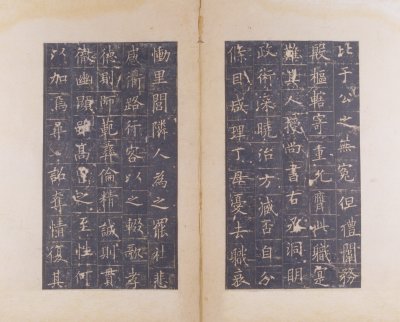 比于公之無冤但禮闈務
殷樞轄寄重允膺此職寔
難其人授尚書右丞洞明
政術深曉治方臧否自分
條目咸理丁母憂去職哀
慟里閭隣人為之罷社悲
感衢路行客以之輟歌孝
德則師範彝倫精誠則貫
徹幽顯雖高之至性何
以加焉尋詔奪情復其